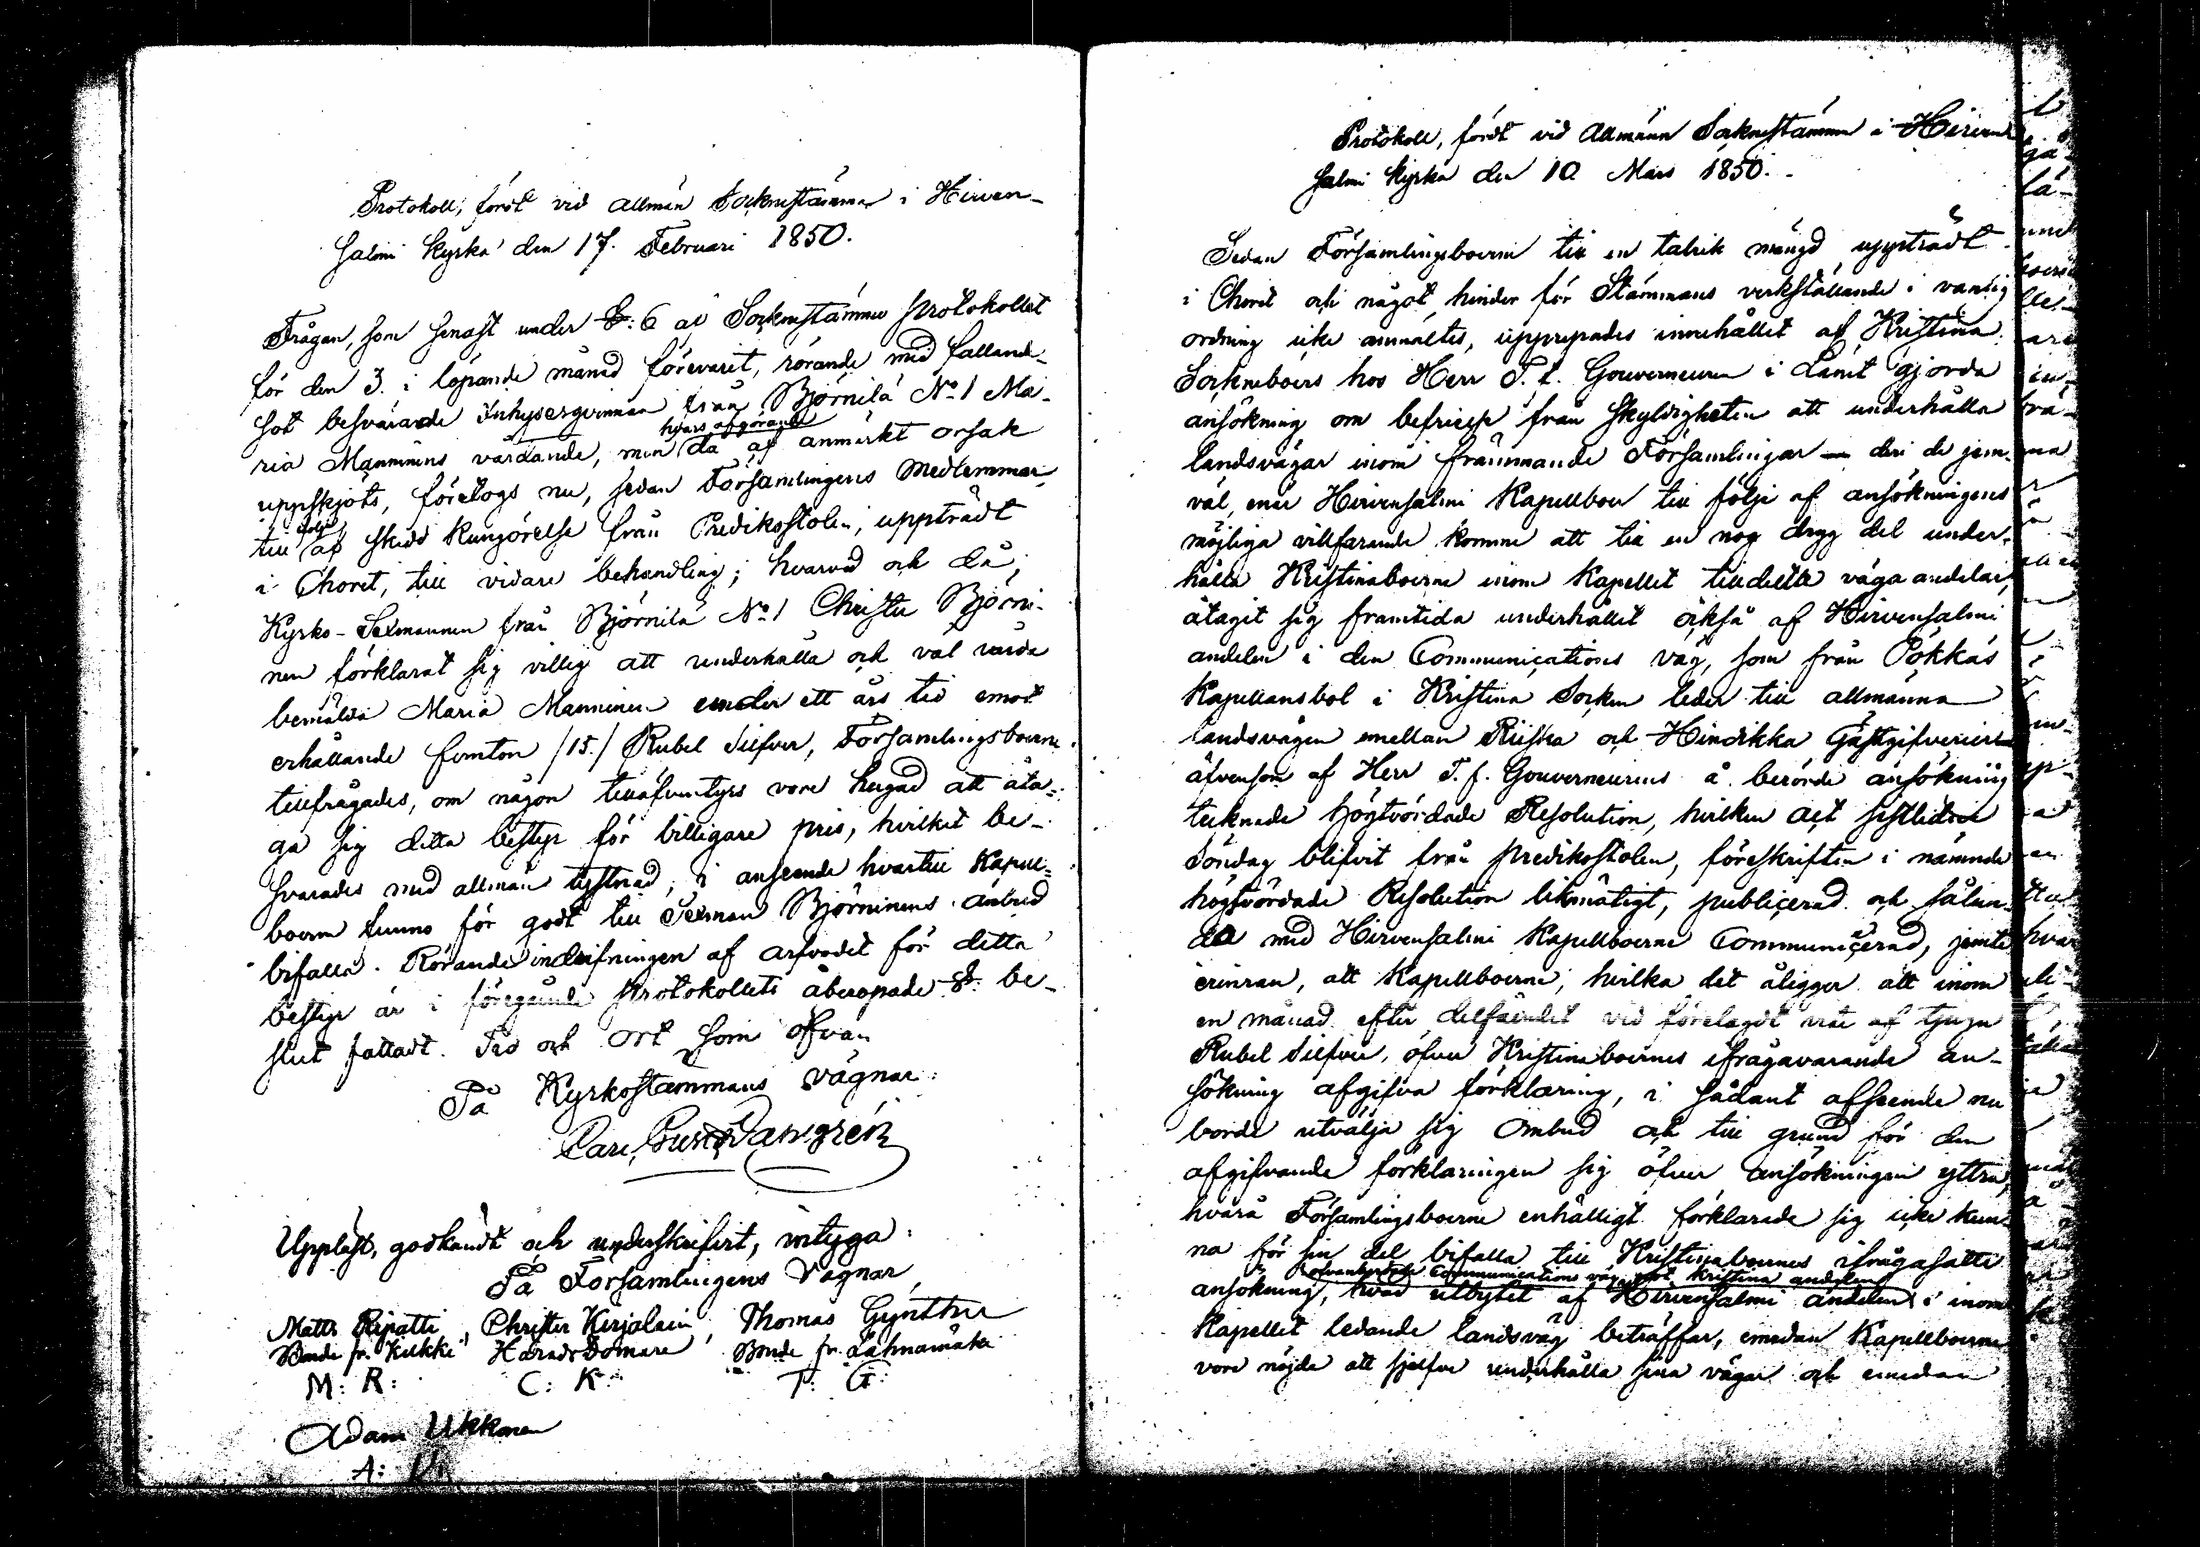 Protokoll, fördt vid allmän Socknestämma i Hirven-
salmi kyrka den 17. Februari 1850.
Frågan, som senast under §: 6 af Socknestämmo protokollet
för den 3. i löpande månad förevarit, rörande med falland-
sot besvärade Inhysesqvinnan från Björnilä No 1 Ma-
ria Manninens vårdande, men då hvars afgörande af anmärkt orsak
uppskjöts, företogs nu, sedan Församlingens Medlemmar,
till följe af skedd kungörelse från Predikostolen, uppträdt
i Choret, till vidare behandling; hvarvid och då,
Kyrko-Sexmannen från Björnilä No 1 Christer Björni-
nen förklarat sig villig att underhålla och väl vårda
bemälda Maria Manninen under ett års tid emot
erhållande femton /15./ Rubel Silfver, Församlingsboerne
tillfrågades, om någon tilläfventyrs vore hugad att åta-
ga sig detta bestyr för billigare pris, hvilket be-
svarades med allmän tystnad; i anseende hvartill Kapell-
boerne funno för godt till Sexman Björninens anbud
bifalla. Rörande indrifningen af arfvodet för detta
bestyr är i föregående protokollets åberopade §: be-
slut fattadt. Tid och ort som ofvan
På Kyrkostämmans vägnar:
Carl Gust Langrén
Uppläst, godkändt och underskrifvit, intyga:
På Församlingens Vägnar,
Matts Ripatti, Christer Kirjalain, Thomas Gynther
Bonde fr. Kilkki Härads Domare Bonde fr. Lahnamäki
M: R: C: K: T: G:
Adam Ukkonen
A: U:
Protokoll, fördt vid allmänn Socknestämma i Hirven
salmi kyrka den 10. Mars 1850.
Sedan Församlingsboerne till en talrik mängd uppträdt
i Choret och något hinder för Stämmans verkställande i vanlig
ordning icke anmältes, upprepades innehållet af Kristina
Sockneboers hos Herr T. f. Gouverneuren i Länet gjorda
ansökning om befrielse från skyldigheten att underhålla
landsvägar inom främmande Församlingar — deri de jem-
väl, enär Hirvensalmi Kapellboer till följe af ansökningens
möjliga villfarande komme att till en nog dryg del under-
hålla Kristinaboerne inom Kapellet tilldelte väga andelar,
åtagit sig framtida underhållet också af Hirvensalmi
andelen i den Communications väg, som från Pökkäs
Kapellansbol i Kristina Socken leder till allmänna
landsvägen emellan Riiska och Hindikka Gästgifverier
äfvensom af Herr T. f. Gouverneurens å berörde ansökning
teknade högtvördade Resolution, hvilken allt sistlidne
Söndag blifvit från predikostolen, föreskriften i nämnde
högtvördade Resolution likmätigt, publicerad och sålun-
da med Hirvensalmi Kapellboerne Communicerad, jemte
erinran, att Kapellboerne, hvilka det åligger att inom
en månad efter delfåendet vid förelagdt vite af tjugu
Rubel Silfver, öfver Kristinaboernes ifrågavarande an-
sökning afgifva förklaring, i sådant afseende nu
borde utvälja sig Ombud och till grund för den
afgifvande förklaringen sig öfver ansökningen yttra,
hvarå Församlingsboerne enhälligt förklarade sig icke kun-
na för sin del bifalla till Kristinaboernes ifrågasatte
ofvanberörde Communications väg mot Kristina andelen
ansökning, hvad utbytet af Hirvensalmi andelen i inom
Kapellet ledande landsväg beträffar, emedan Kapellboerne
vore nöjde att sjelfve underhålla sina vägar och emedan